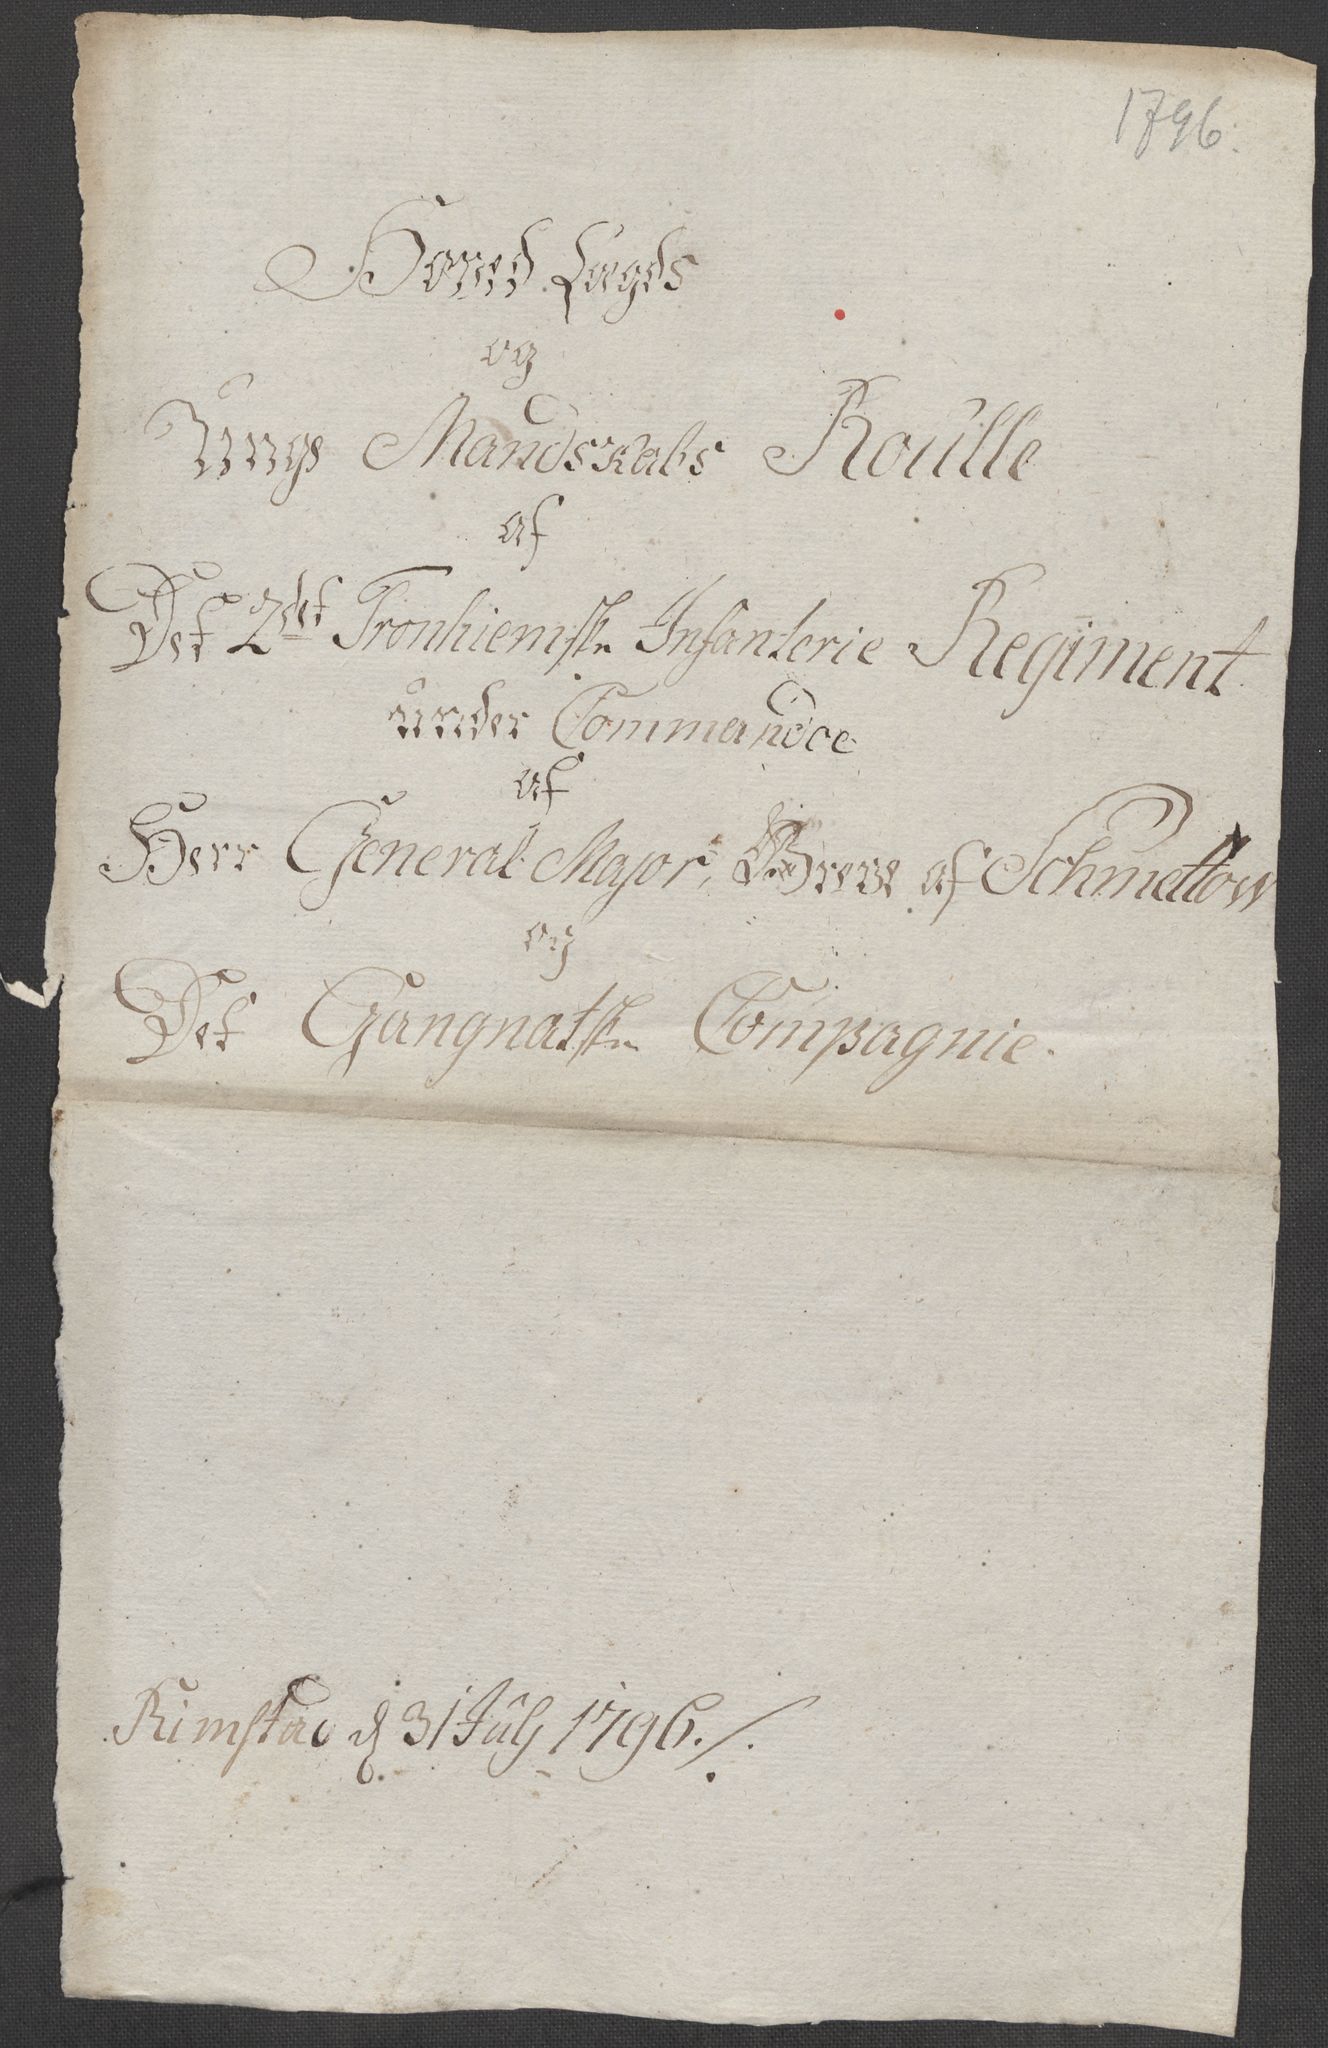 1796.
Hoved Lægds
og
Unge Mandskabs Roulle
af
Det 2det Tronhiemske Infanterie Regiment
under Commandoe
af
Herr General Major, Greve af Schmettow
og
Det Gangnatske Compagnie.
Rimstad d 31 July 1796./.